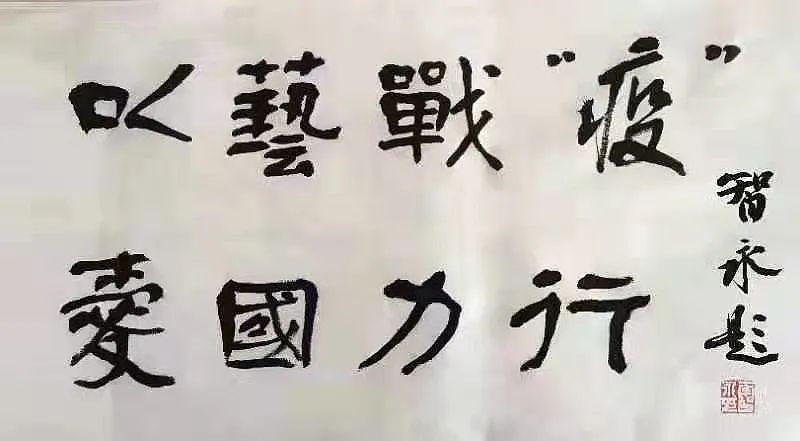 以藝戰“疫”
愛國力行
智永題